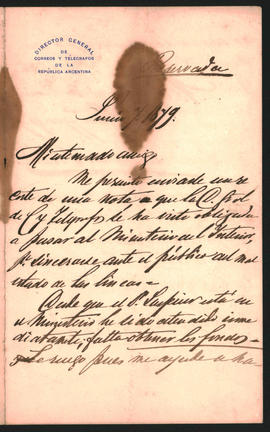 DIRECTOR GENERAL
DE
CORREOS Y TELEGRAFOS
DE LA
REPÚBLICA ARGENTINA
Reservada
Junio 7. 1879.
Mi estimado amigo
Me permito enviarle una re
de una nota a que la D. Gral
de C y Telegrafos se ha visto obligada
a pasar al Ministerio del Interior,
pa. sincerarse ante el público del mal
estado de las lineas-
Desde que el S. Laspiur está en
el Ministerio he sido atendido
falta obtener los fondos-
Le ruego pues me ayude a ha-